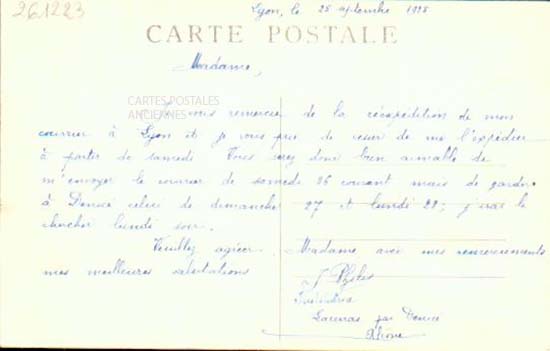 261223
Lyon, le 25 septembre 1925
CARTE POSTALE
Madame,
CARTES POSTALES
ANCIENNES
Je vous remercie de la réexpédition de mon
courrier à Lyon et je vous prie de cesser de me l'expédier
à partir de samedi Vous serez donc bien aimable de
m'envoyer le courrier de samedi 26 courant mais de garder
à Denicé celui de dimanche 27 et lundi 28; j'irai le
chercher lundi soir.
Veuillez agréer Madame avec mes remerciements
mes meilleures salutations
J
Lacenas par Denicé
Rhône